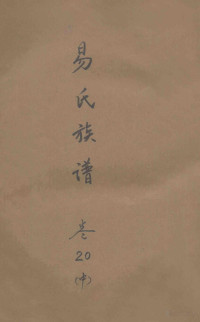 易氏族谱
卷
20
(中)